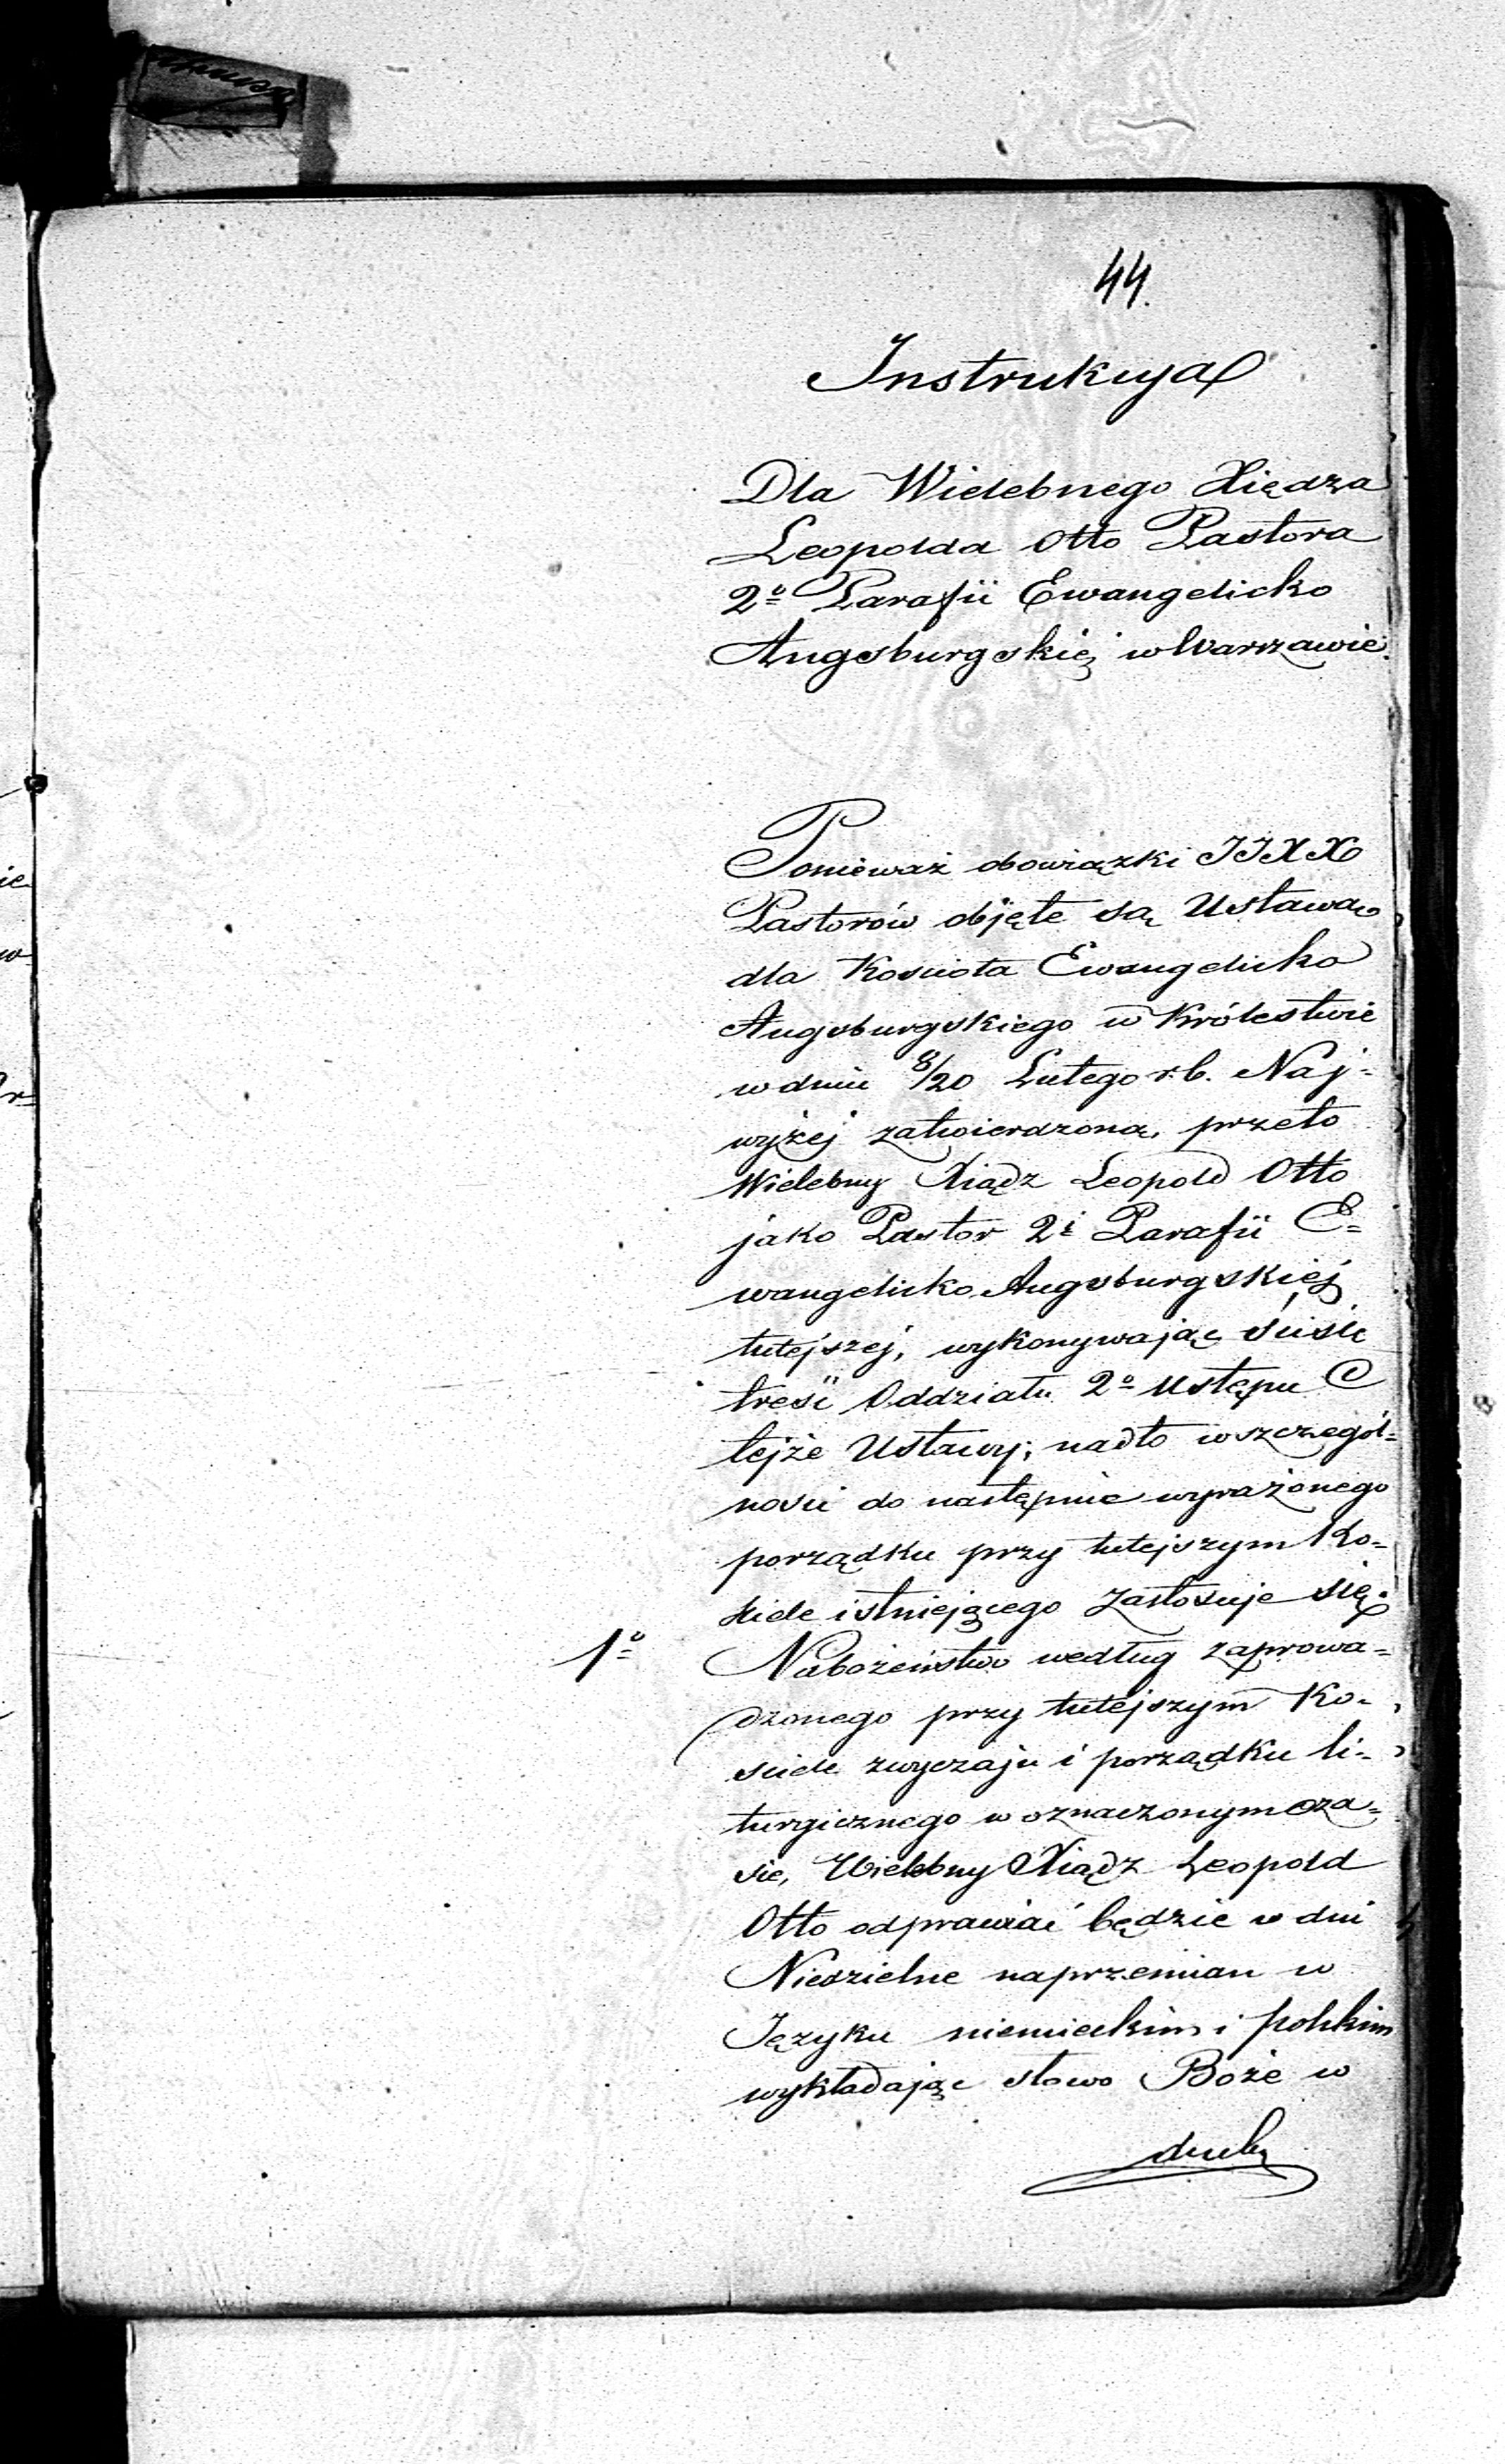 44.
Instrukcya
Dla Wielebnego Xiędza
Leopolda Otto Pastora
2º Parafii Ewangelicko
Augsburgskiej w Warszawie.
Ponieważ obowiązki JJXX
Pastorów objęte są Ustawą
dla Kościoła Ewangelicko
Augsburgskiego w Królestwie
w dniu 8/20 Lutego r.b. Naj=
wyżej zatwierdzoną, przeto
Wielebny Xiądz Leopold Otto
jako Pastor 2i Parafii E=
wangelicko Augsburgskiej
tutejszej, wykonywając ściśle
treść Oddziału 2º Ustępu C
tejże Ustawy; nadto w szczegól=
ności do następnie wyrażonego
porządku przy tutejszym Ko=
ściele istniejącego zastosuje się.
1º Nabożeństwo według zaprowa=
dzonego przy tutejszym Ko=
ściele zwyczaju i porządku li=
turgicznego w oznaczonym cza=
sie, Wielebny Xiądz Leopold
Otto odprawiać będzie w dni
Niedzielne naprzemian w
Języku niemieckim i polskim
wykładając słowo Boże w
duchu